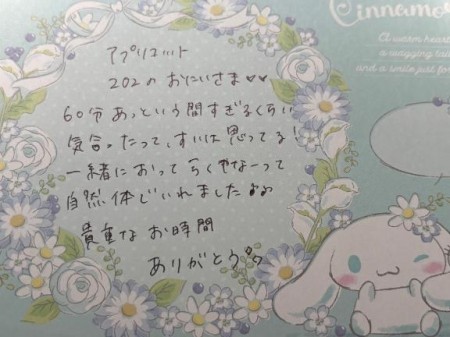 Cinnamo
A warm heart
a wagging tai
and a smile just fo
アプリエット
202のおにいさま♡♡
60分あっという間すぎるくらい
気合ったって、すいは思ってる！
一緒におってらくやなーって
自然体でいれました
貴重なお時間
ありがとう